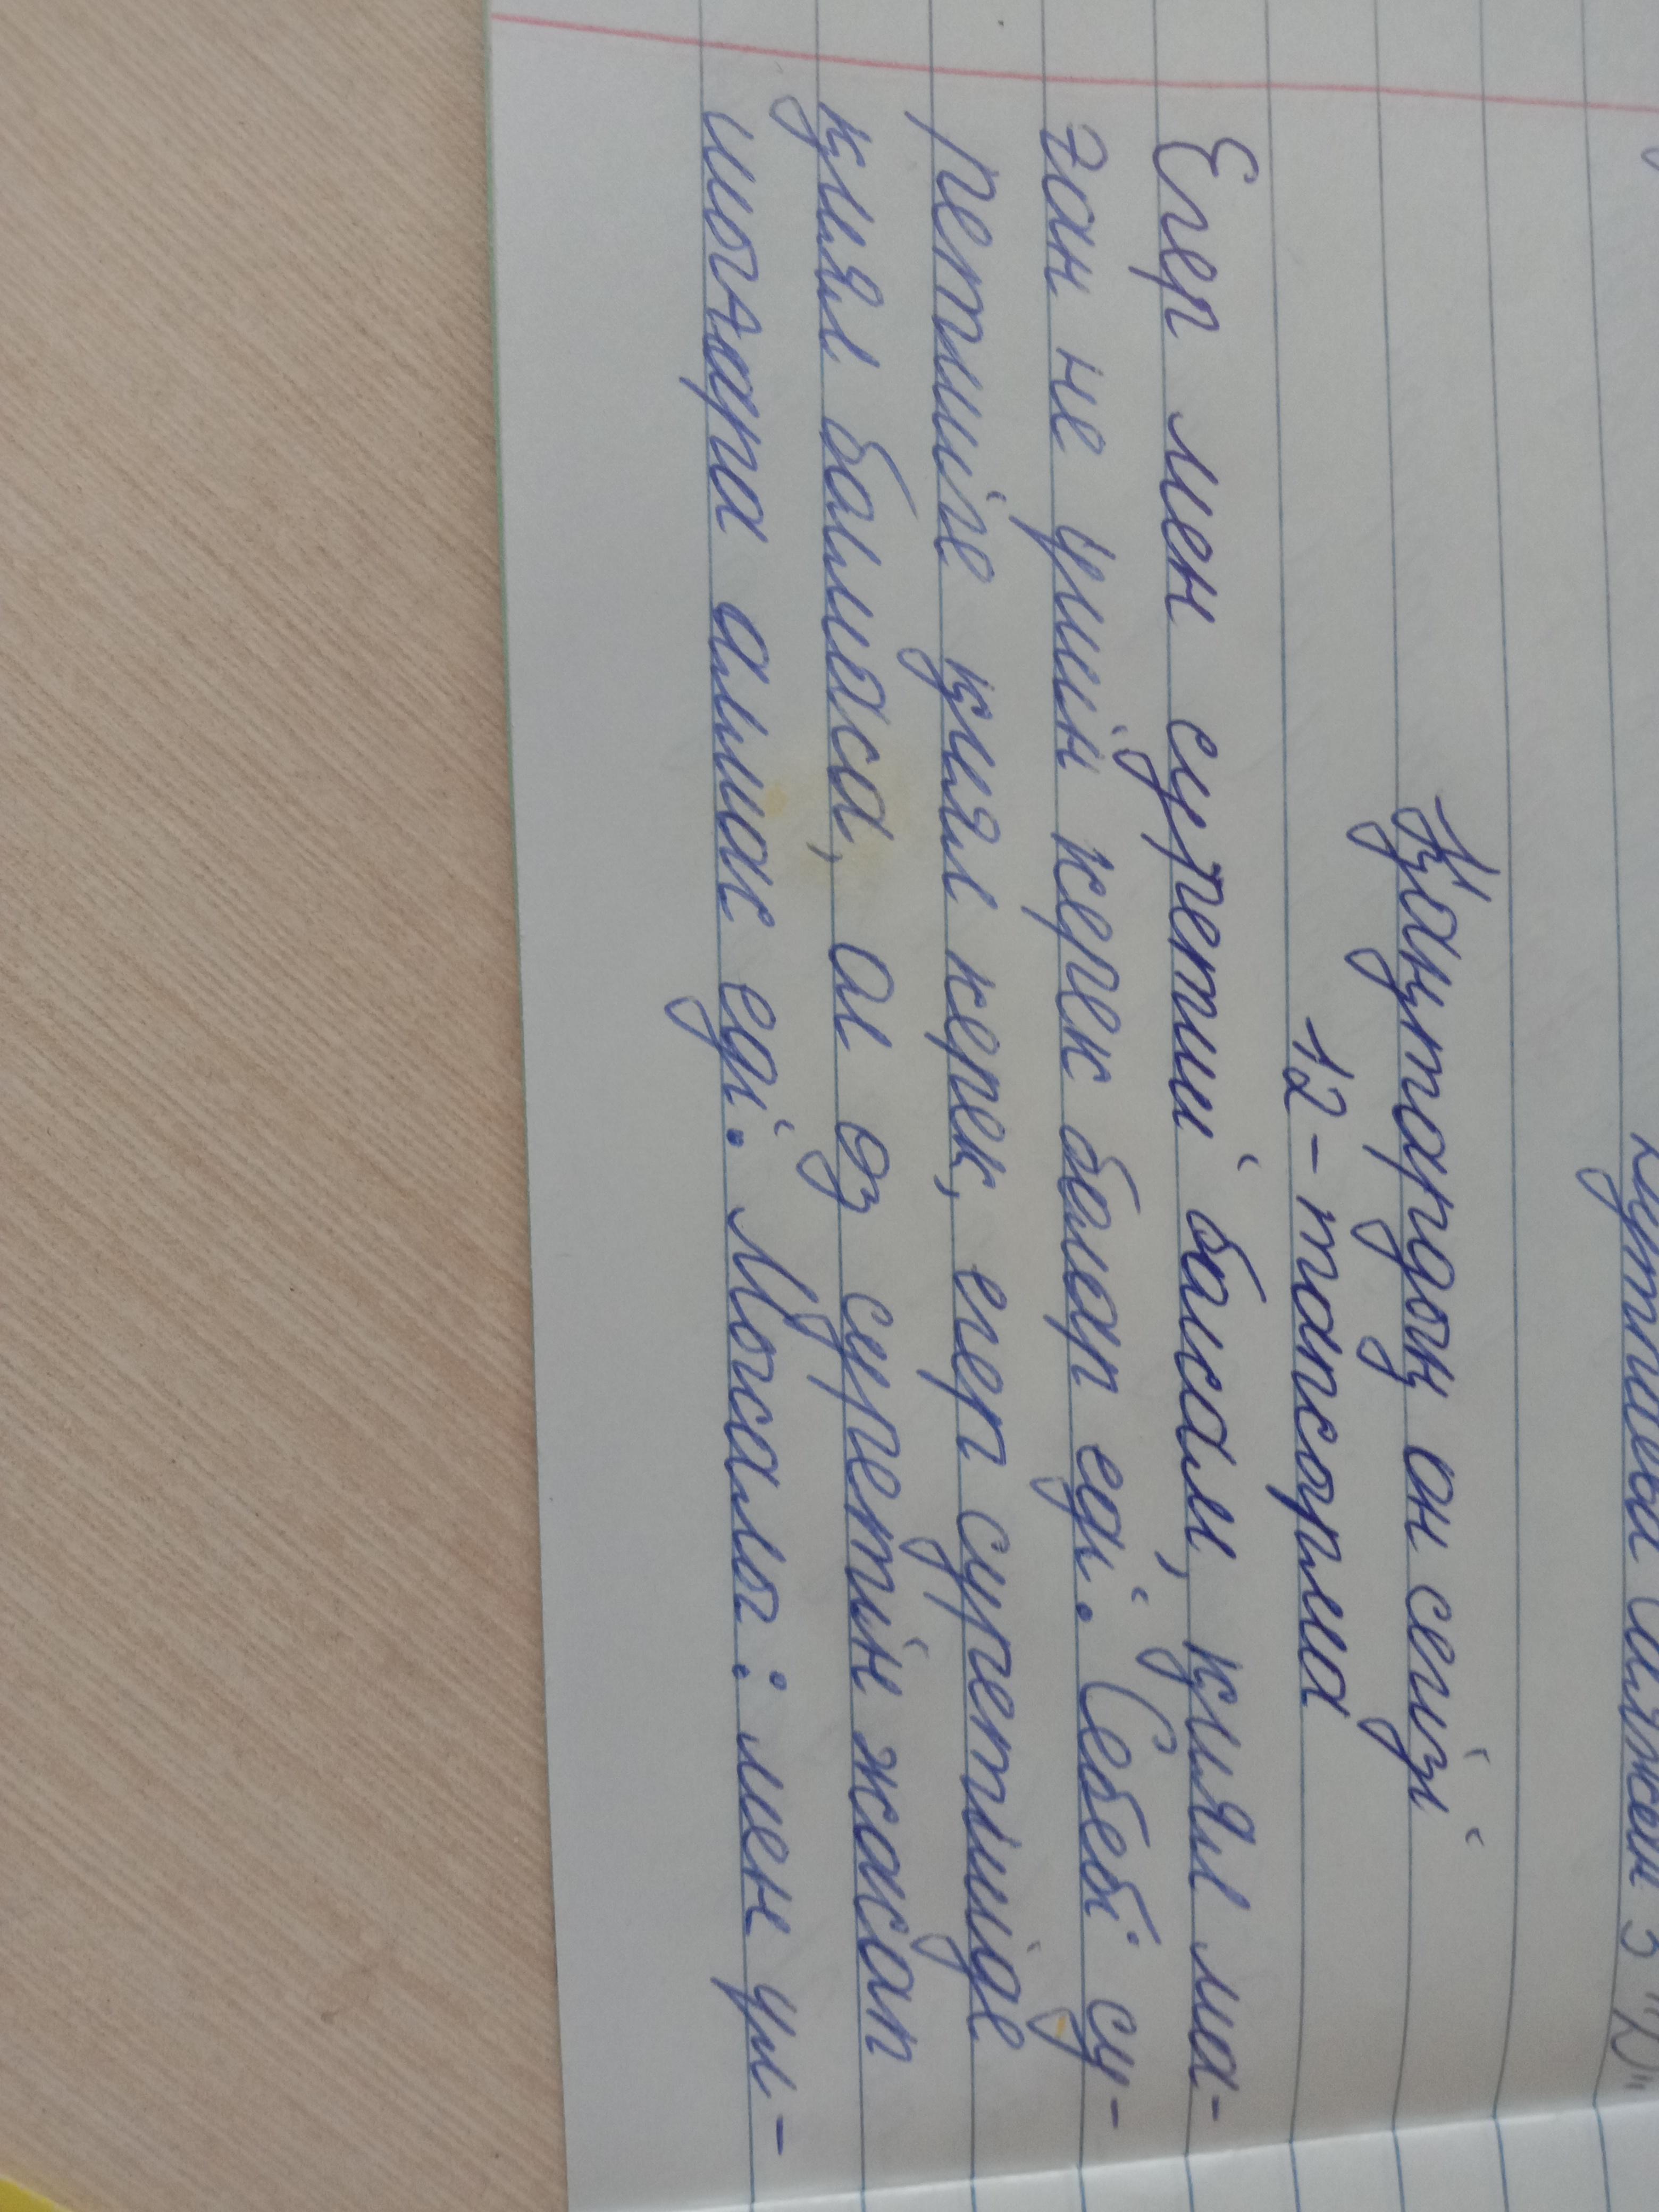 Қаңтардың он сегізі
12-тапсырма
Егер мен суретші болсам, қиял ма-
ған не үшін керек болар еді. Себебі су-
ретшіге қиял керек, егер суретшіде
қиял болмаса, ол өз суретін жасап
шығара алмас еді. Мысалы: мен үл-